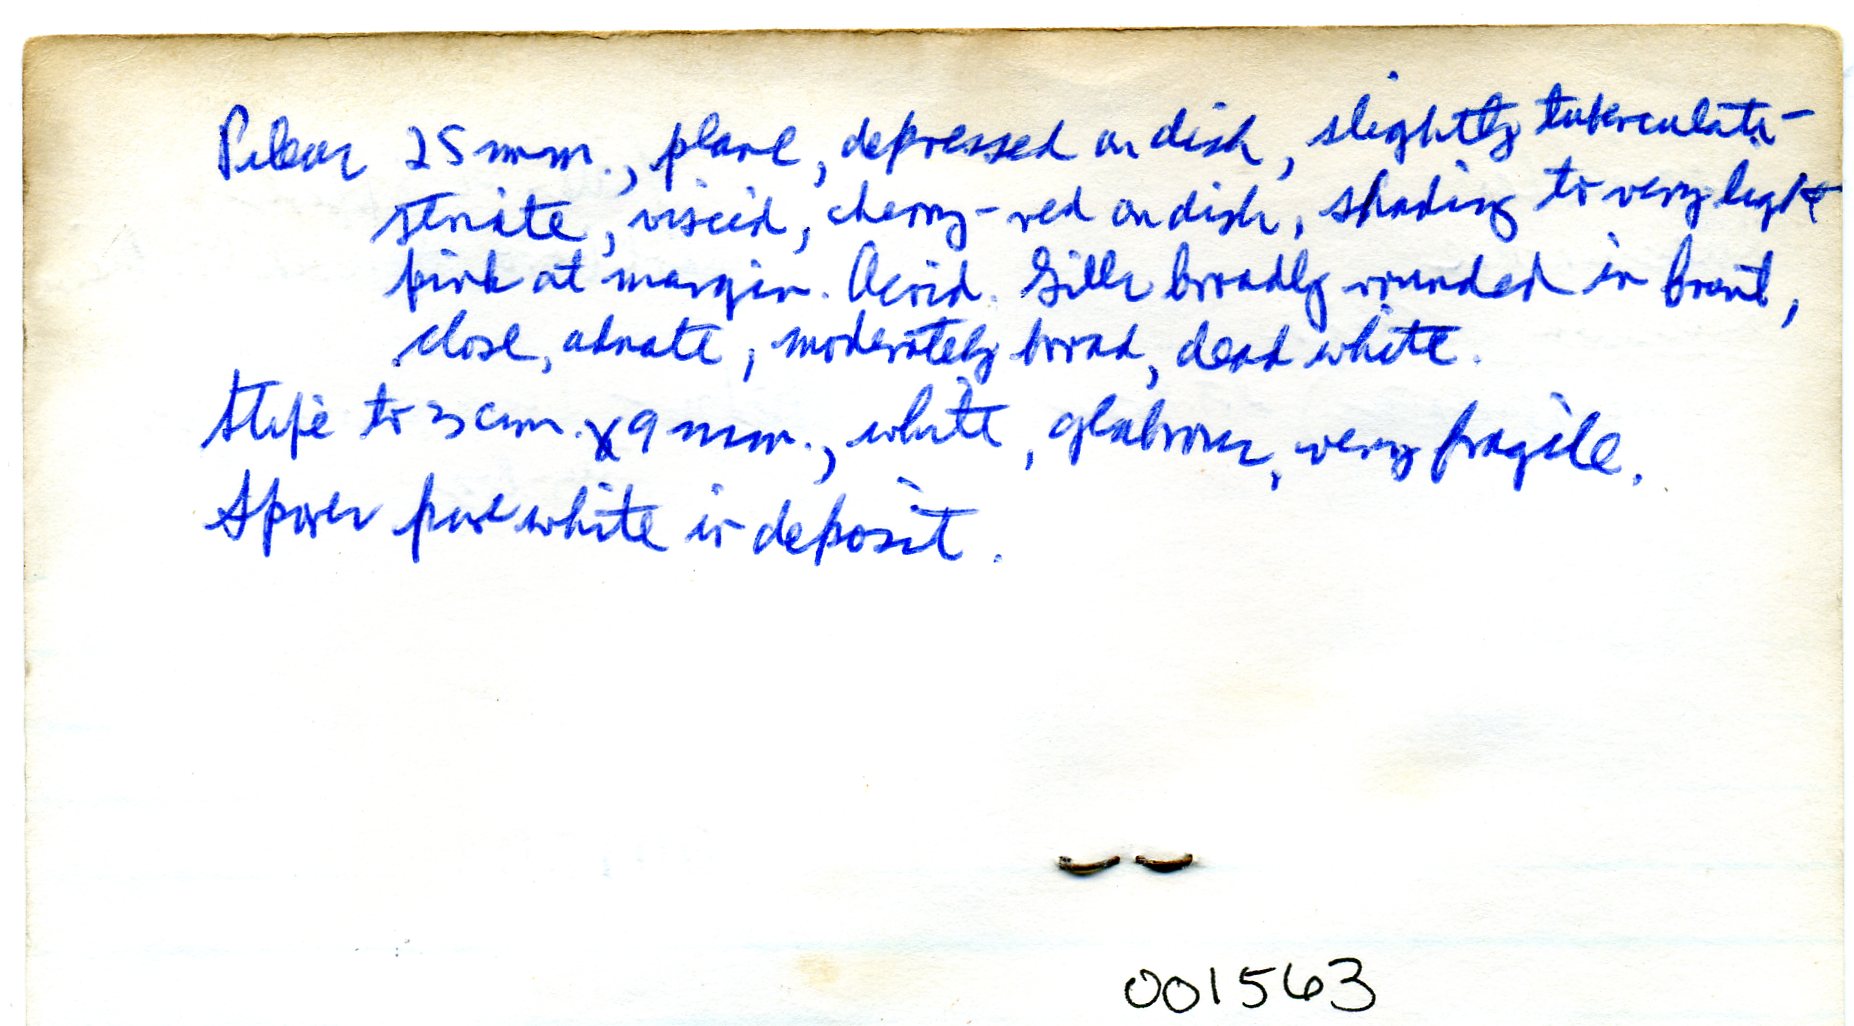 Pileus 25 mm., plane, depressed on disk, slightly tuberculate-
striate, viscid, cherry-red on disk, shading to very light
pink at margin. Acrid. Gills broadly rounded in front,
close, adnate, moderately broad, dead white.
Stipe to 3 cm. x 9 mm., white, glabrous, very fragile.
Spores pure white in deposit.
001563